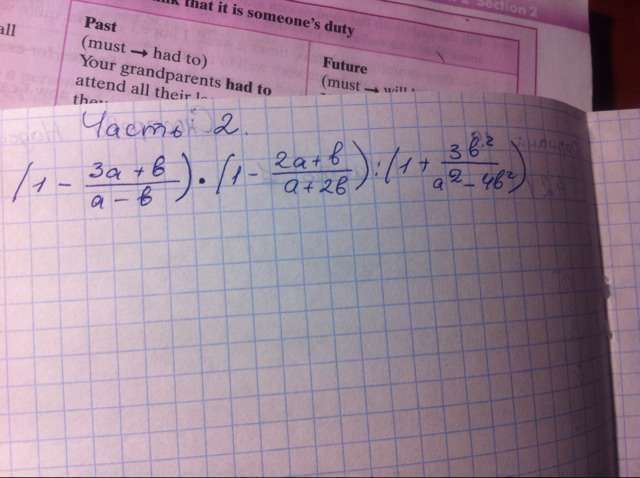 Section 2
that it is someone's duty
all
Past
(must → had to)
Your grandparents had to
attend all their
they
Future
(must → will
Часть 2.
(1 - \frac{3a+b}{a-b}) \cdot (1 - \frac{2a+b}{a+2b}) : (1 + \frac{3b^2}{a^2-4b^2})